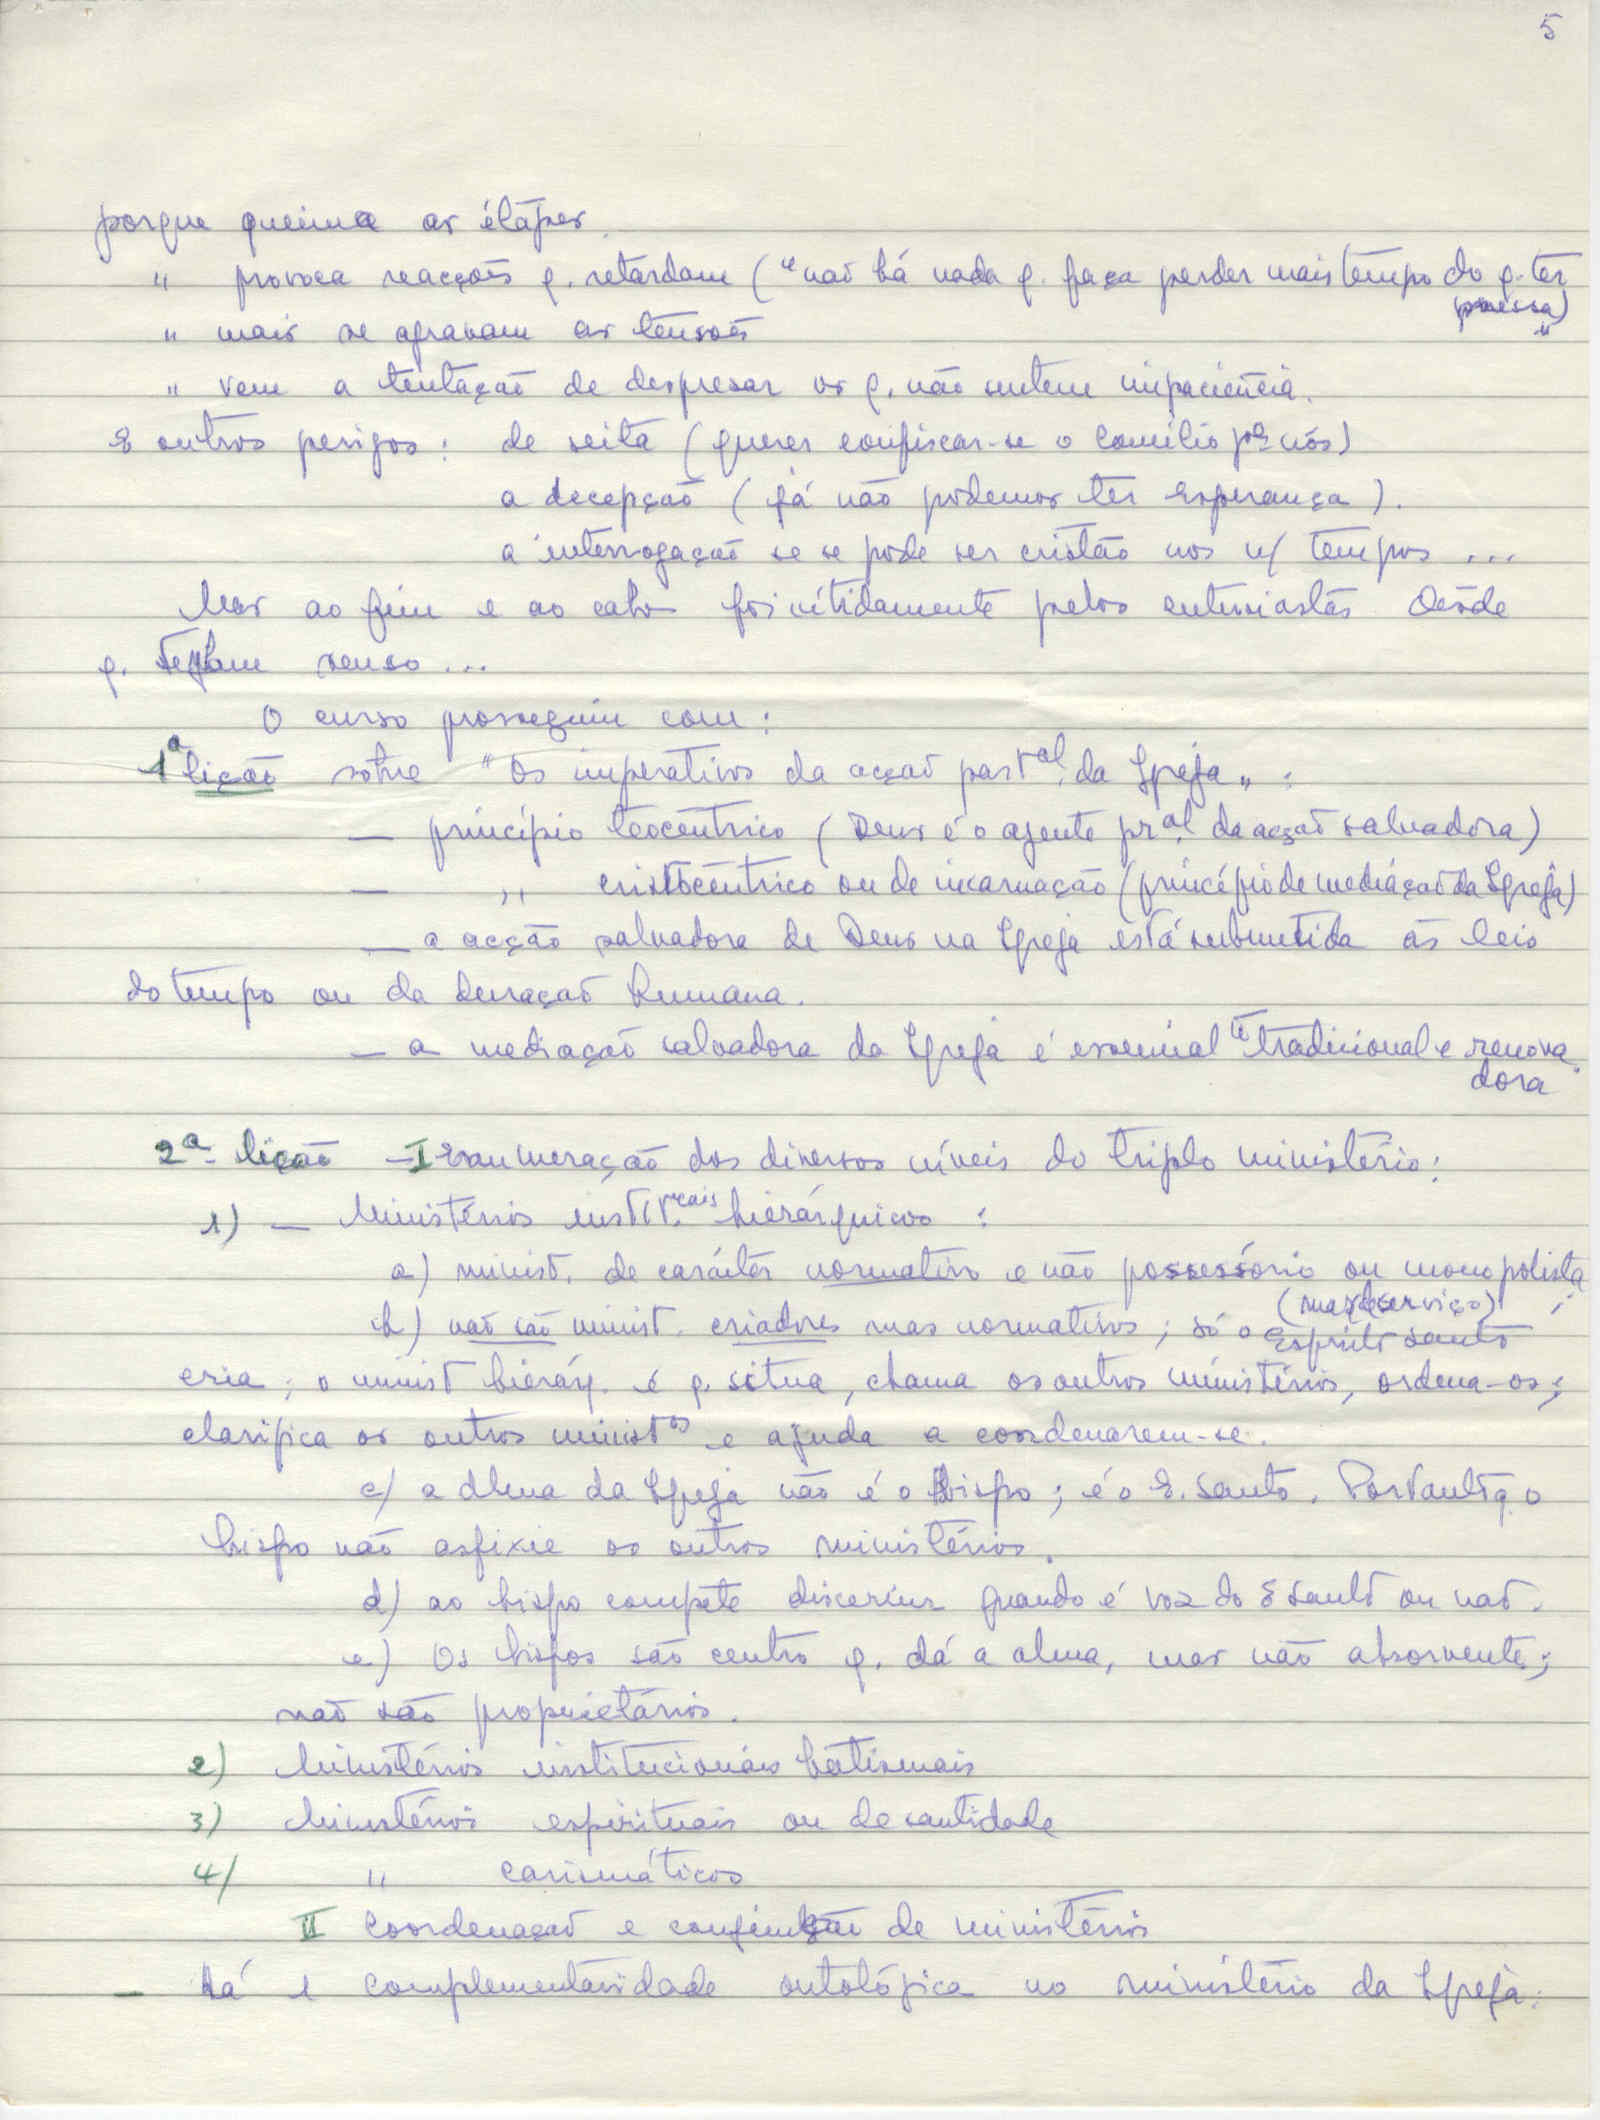 5
porque queima as étapes.
" provoca reacções q. retardam ("não há nada q. faça perder mais tempo do q. ter
pressa)
"
" mais se agravam as tensões
" vem a tentação de despresar os q. não sentem impaciência.
E outros perigos: de seita (querer confiscar-se o Concílio pª nós)
a decepção (já não podemos ter esperança).
a interrogação se se pode ser cristão nos n/ tempos ...
Mas ao fim e ao cabo foi nitidamente pelos entusiastas. Desde
q. tenham senso ...
O curso prosseguiu com:
1ª lição sobre "Os imperativos da acção past.al da Igreja":
— princípio teocêntrico (Deus é o agente pr.al da acção salvadora)
— ,, cristocêntrico ou de incarnação (princípio de mediação da Igreja)
— a acção salvadora de Deus na Igreja está submetida às leis
do tempo ou da duração humana.
— a mediação salvadora da Igreja é essencial te tradicional e renova
dora
2ª lição — I Enumeração dos diversos níveis do triplo ministério:
1) — Ministérios instit.cais hierárquicos:
a) minist. de carácter normativo e não possessório ou monopolista
(mas de serviço) ;
b) não são minist. criadores mas normativos; só o Espírito Santo
cria; o minist hierárq. é q. situa, chama os outros ministérios, ordena-os;
clarifica os outros minist.os e ajuda a coordenarem-se.
c) a alma da Igreja não é o Bispo; é o E. Santo. Portanto q. o
bispo não asfixie os outros ministérios.
d) ao bispo compete discernir quando é voz do E Santo ou não.
e) Os bispos são centro q. dá a alma, mas não absorvente;
não são proprietários.
2) Ministérios institucionais batismais
3) Ministérios espirituais ou de santidade
4) " carismáticos
II Coordenação e conjunção de ministérios
— Há 1 complementaridade ontológica no ministério da Igreja: